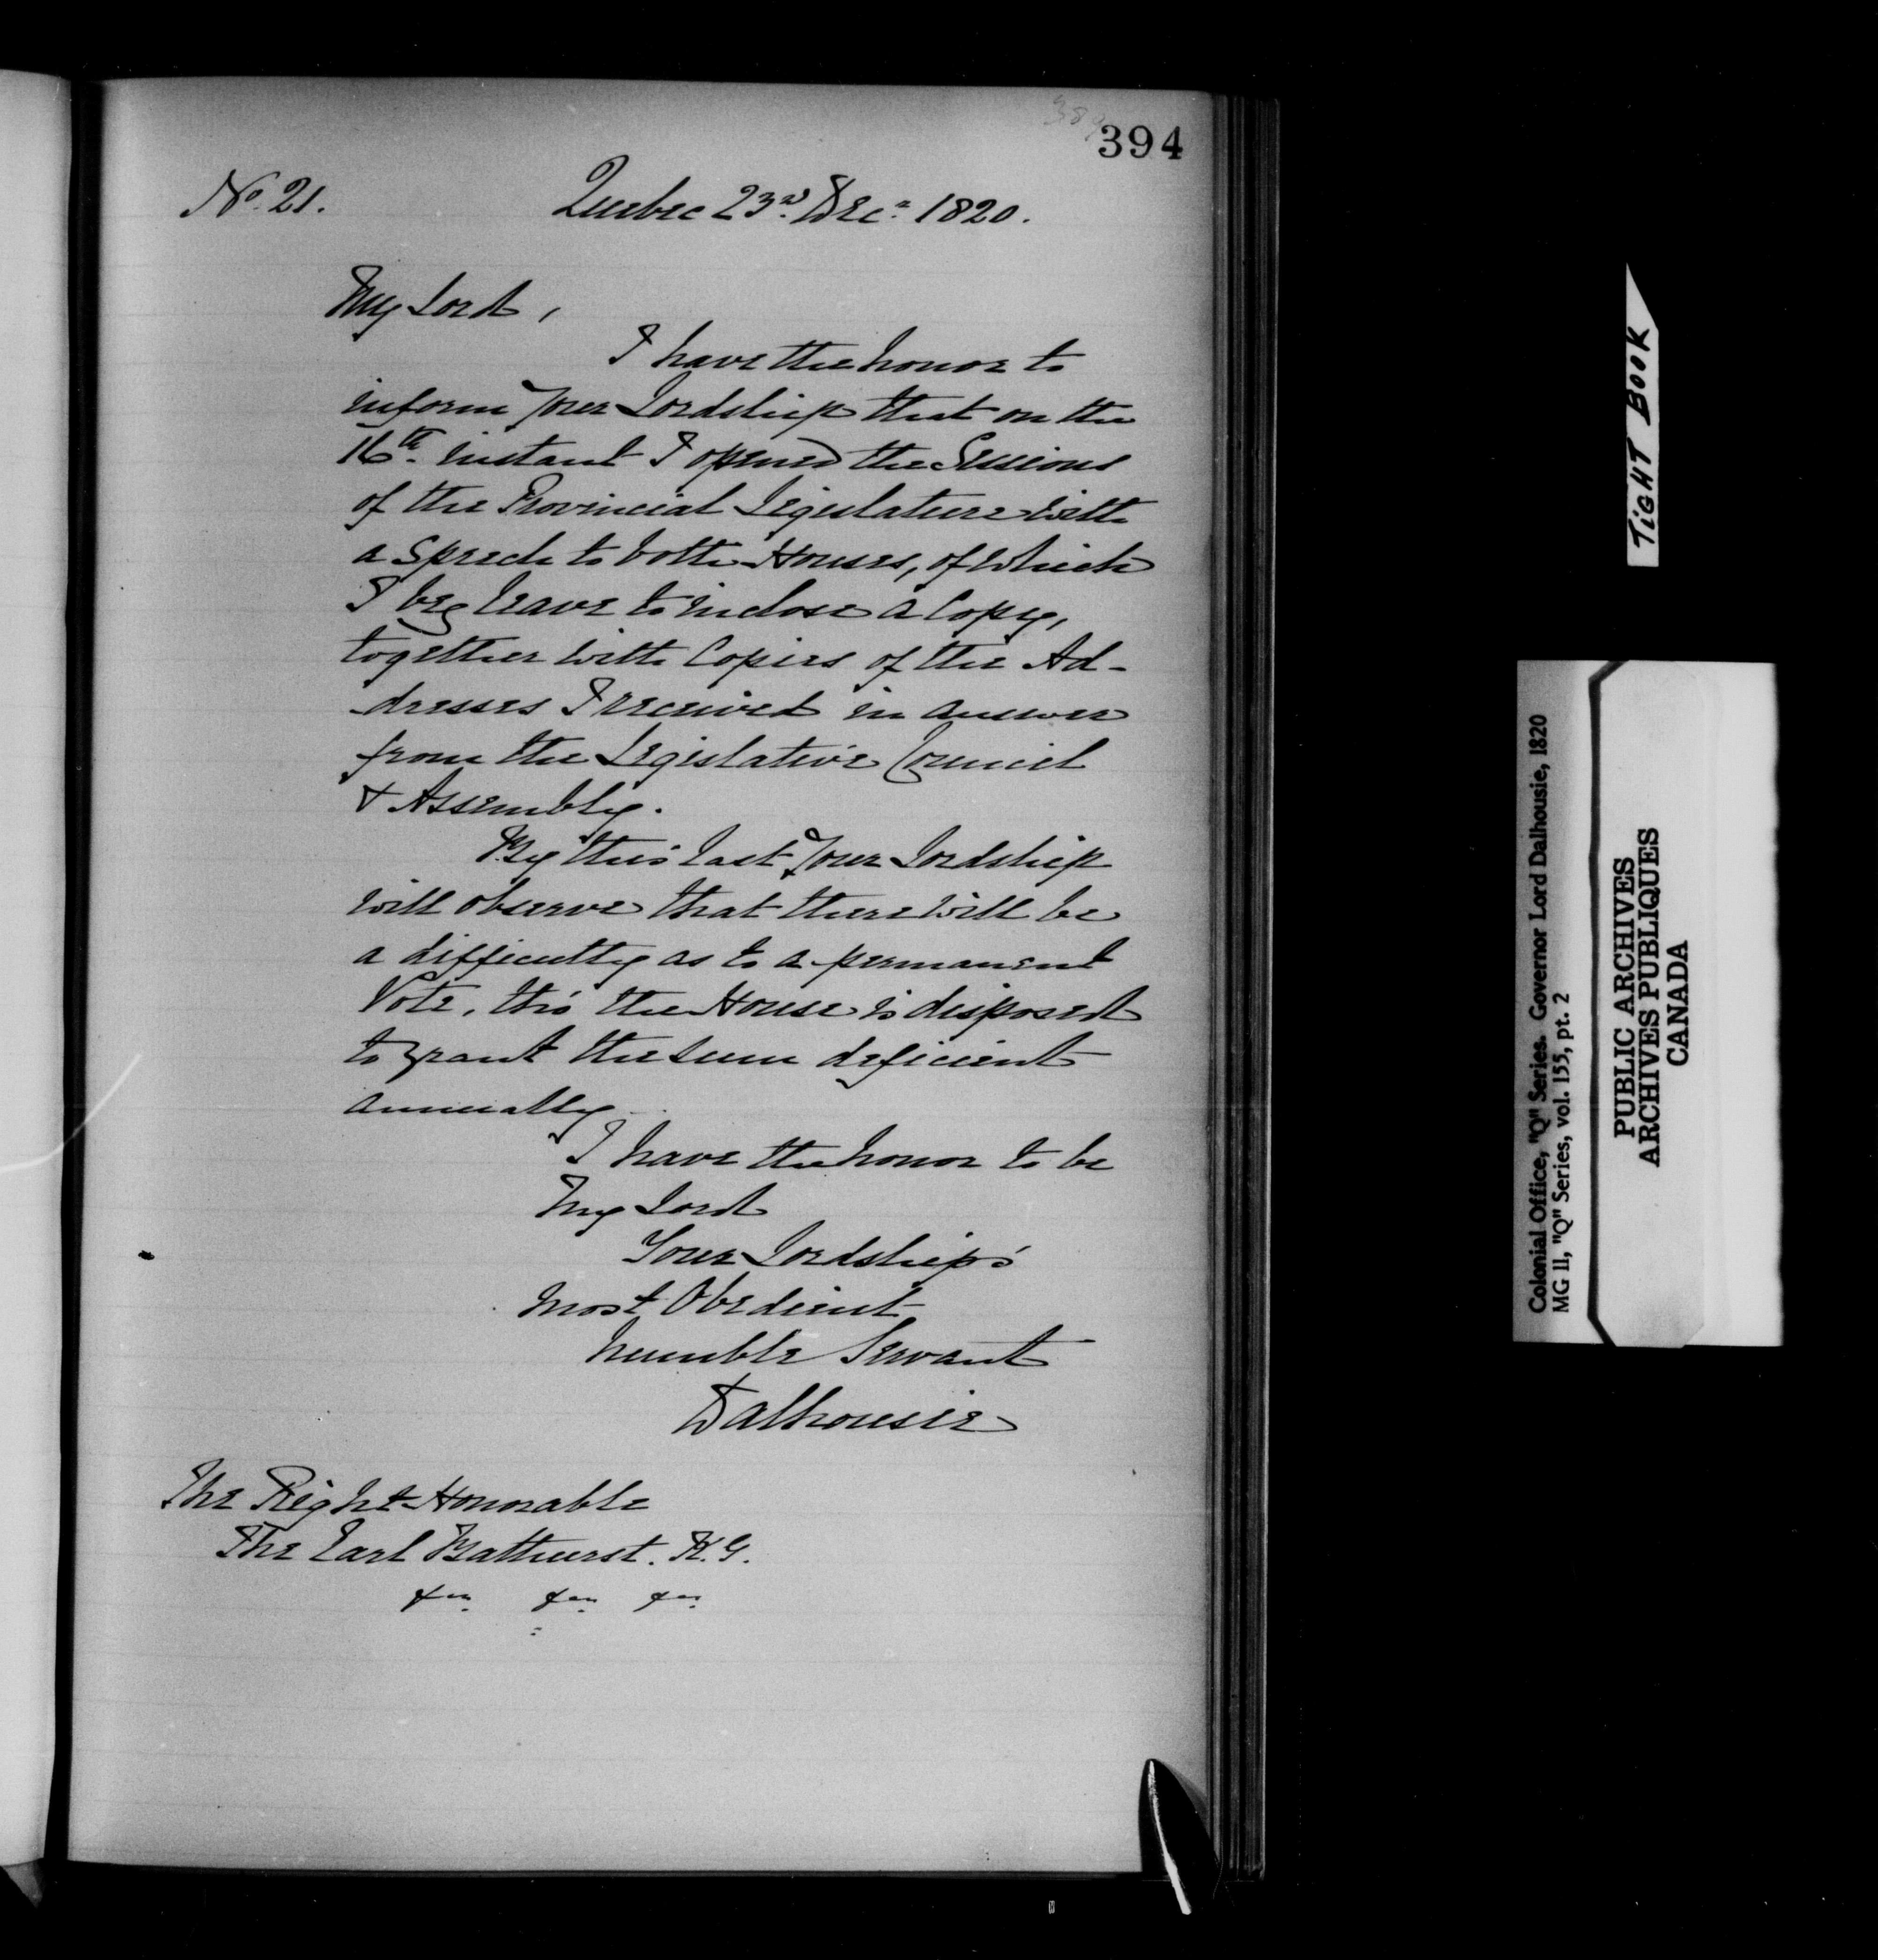 394
No. 21.
Quebec 23rd. Decr. 1820.
My Lord,
I have the honor to
inform your Lordship that on the
16th. instant I opened the Sessions
of the Provincial Legislature with
a Speech to both Houses, of which
I beg leave to inclose a Copy,
together with Copies of the Ad-
-dresses I received in answer
from the Legislative Council
& Assembly.
By this last your Lordship
will observe that there will be
a difficulty as to a permanent
Vote, tho' the House is disposed
to grant the sum deficient
annually.
I have the honor to be
My Lord
Your Lordship's
most Obedient
humble Servant
Dalhousie
The Right Honorable
The Earl Bathurst. K.G.
&c. &c. &c.
TIGHT BOOK
Colonial Office, "Q" Series. Governor Lord Dalhousie, 1820
MG 11, "Q" Series, vol. 155, pt. 2
PUBLIC ARCHIVES
ARCHIVES PUBLIQUES
CANADA